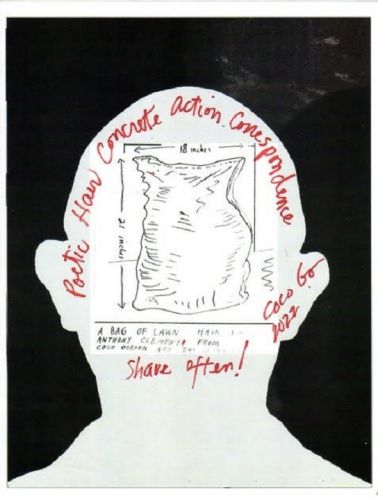 Poetic Hair Concrete Action Correspondence
18 inches
21 inches
A BAG OF LAWN HAIR
ANTHONY CLEMENT, FROM
COCO GORDON AND
Share often!
Coco Go
2022